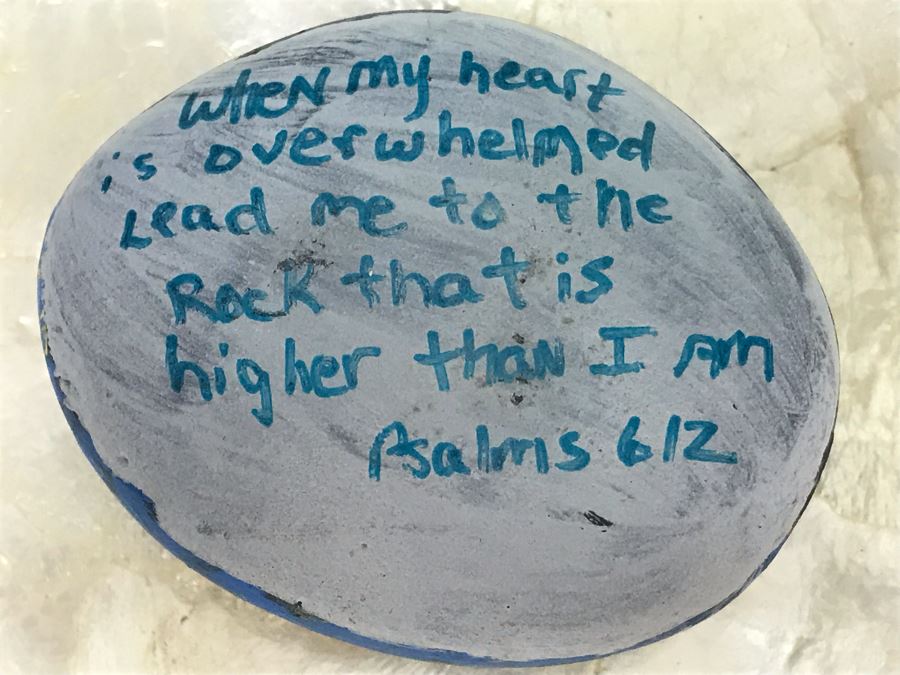 WHEN my heart
is overwhelmed
Lead me to the
Rock that is
higher than I Am
Psalms 612